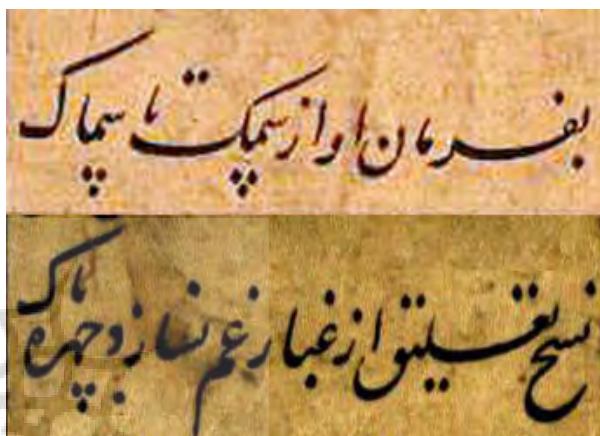 بفرمان او از سمک تا سماک
نسخ تعلیق از غبار غم نسازد چهره پاک